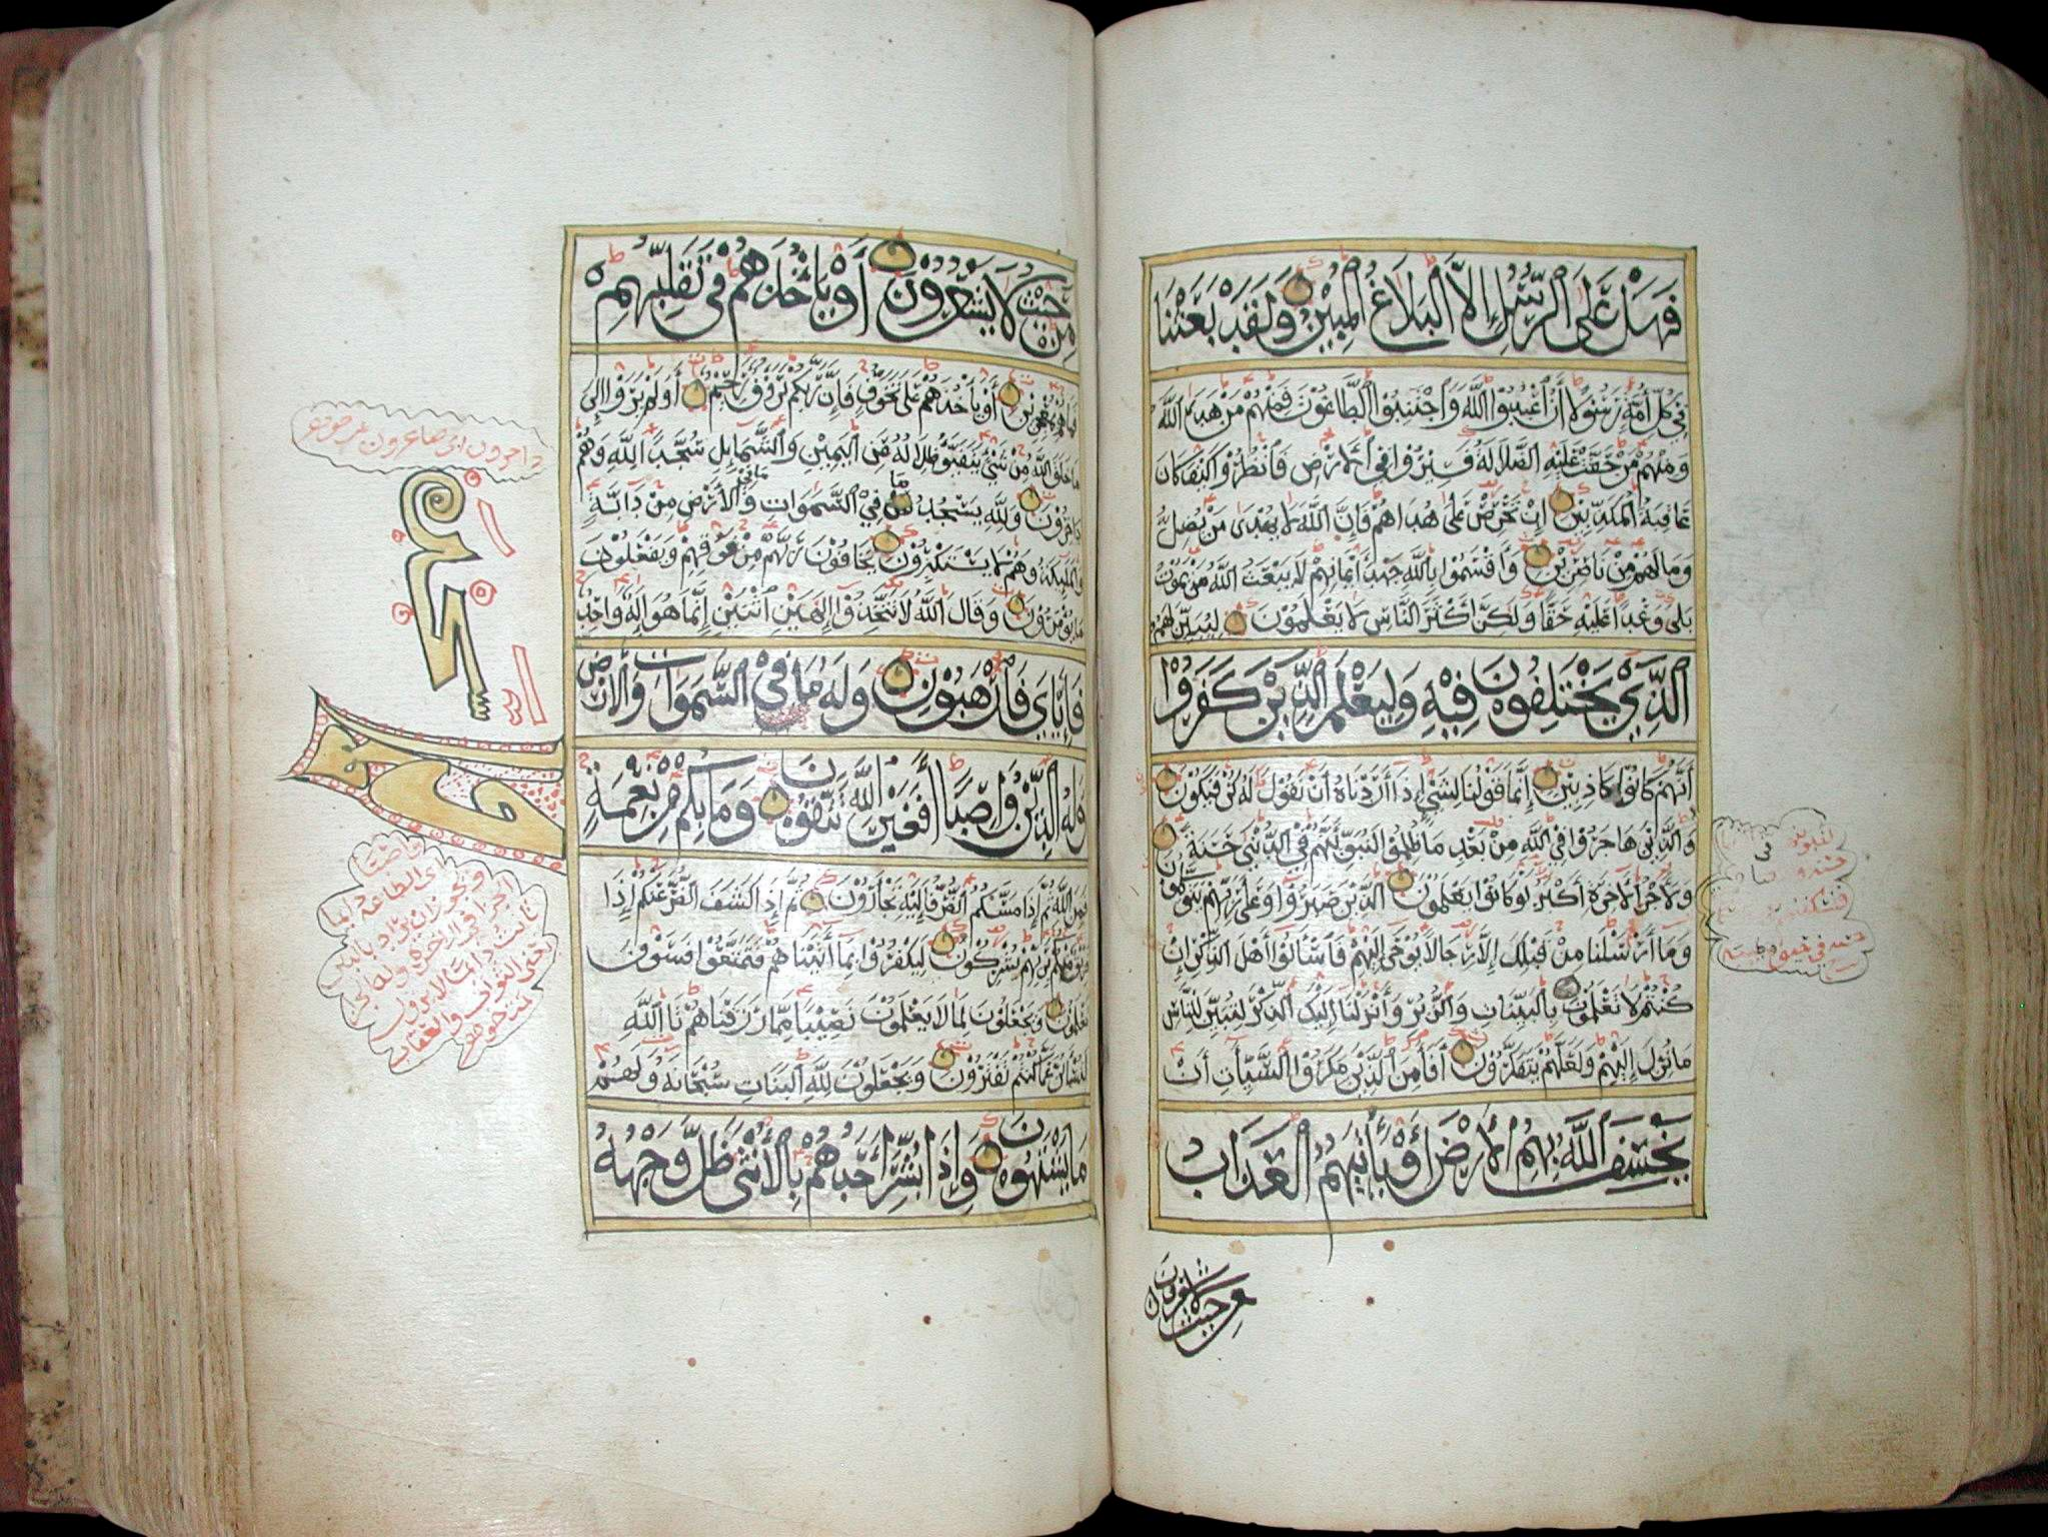 فَهَلْ عَلَى الرُّسُلِ إِلَّا الْبَلَاغُ الْمُبِيْنُ وَلَقَدْ بَعَثْنَا
فِيْ كُلِّ أُمَّةٍ رَسُوْلًا أَنْ اعْبُدُوا اللَّهَ وَاجْتَنِبُوا الطَّاغُوْتَ فَمِنْهُمْ مَنْ هَدَى اللَّهُ
وَمِنْهُمْ مَنْ حَقَّتْ عَلَيْهِ الضَّلَالَةُ فَسِيْرُوْا فِي الْأَرْضِ فَانْظُرُوْا كَيْفَ كَانَ
عَاقِبَةُ الْمُكَذِّبِيْنَ إِنْ تَحْرِصْ عَلَى هُدَاهُمْ فَإِنَّ اللَّهَ لَا يَهْدِى مَنْ يُضِلُّ
وَمَا لَهُمْ مِنْ نَاصِرِيْنَ وَأَقْسَمُوْا بِاللَّهِ جَهْدَ أَيْمَانِهِمْ لَا يَبْعَثُ اللَّهُ مَنْ يَمُوْتُ
بَلَى وَعْدًا عَلَيْهِ حَقًّا وَلَكِنَّ أَكْثَرَ النَّاسِ لَا يَعْلَمُوْنَ لِيُبَيِّنَ لَهُمُ
الَّذِيْ يَخْتَلِفُوْنَ فِيْهِ وَلِيَعْلَمَ الَّذِيْنَ كَفَرُوْا
أَنَّهُمْ كَانُوْا كَاذِبِيْنَ إِنَّمَا قَوْلُنَا لِشَيْءٍ إِذَا أَرَدْنَاهُ أَنْ نَقُوْلَ لَهُ كُنْ فَيَكُوْنُ
وَالَّذِيْنَ هَاجَرُوْا فِي اللَّهِ مِنْ بَعْدِ مَا ظُلِمُوْا لَنُبَوِّئَنَّهُمْ فِي الدُّنْيَى حَسَنَةً
وَلَأَجْرُ الْآخِرَةِ أَكْبَرُ لَوْ كَانُوْا يَعْلَمُوْنَ الَّذِيْنَ صَبَرُوْا وَعَلَى رَبِّهِمْ يَتَوَكَّلُوْنَ
وَمَا أَرْسَلْنَا مِنْ قَبْلِكَ إِلَّا رِجَالًا يُوْحَى إِلَيْهِمْ فَاسْأَلُوْا أَهْلَ الذِّكْرِ إِنْ
كُنْتُمْ لَا تَعْلَمُوْنَ بِالْبَيِّنَاتِ وَالزُّبُرِ وَأَنْزَلْنَا إِلَيْكَ الذِّكْرَ لِتُبَيِّنَ لِلنَّاسِ
مَا نُزِّلَ إِلَيْهِمْ وَلَعَلَّهُمْ يَتَفَكَّرُوْنَ أَفَأَمِنَ الَّذِيْنَ مَكَرُوْا السَّيِّآتِ أَنْ
يَخْسِفَ اللَّهُ بِهِمُ الْأَرْضَ أَوْ يَأْتِيَهُمُ الْعَذَابُ
مِنْ حَيْثُ لَا يَشْعُرُوْنَ
مِنْ حَيْثُ لَا يَشْعُرُوْنَ أَوْ يَأْخُذَهُمْ فِي تَقَلُّبِهِمْ
فَمَا هُمْ بِمُعْجِزِيْنَ أَوْ يَأْخُذَهُمْ عَلَى تَخَوُّفٍ فَإِنَّ رَبَّكُمْ لَرَؤُفٌ رَحِيْمٌ أَوَلَمْ يَرَوْا إِلَى
مَا خَلَقَ اللَّهُ مِنْ شَيْءٍ يَتَفَيَّؤُ ظِلَالُهُ عَنِ الْيَمِيْنِ وَالشَّمَائِلِ سُجَّدًا لِلَّهِ وَهُمْ
دَاخِرُوْنَ وَلِلَّهِ يَسْجُدُ مَا فِي السَّمَوَاتِ وَمَا فِي الْأَرْضِ مِنْ دَابَّةٍ
وَالْمَلَائِكَةُ وَهُمْ لَا يَسْتَكْبِرُوْنَ يَخَافُوْنَ رَبَّهُمْ مِنْ فَوْقِهِمْ وَيَفْعَلُوْنَ
مَا يُؤْمَرُوْنَ وَقَالَ اللَّهُ لَا تَتَّخِذُوْا إِلَهَيْنِ اثْنَيْنِ إِنَّمَا هُوَ إِلَهٌ وَاحِدٌ
فَإِيَّايَ فَارْهَبُوْنِ وَلَهُ مَا فِي السَّمَوَاتِ وَالْأَرْضِ
وَلَهُ الدِّيْنُ وَاصِبًا أَفَغَيْرَ اللَّهِ تَتَّقُوْنَ وَمَا بِكُمْ مِنْ نِعْمَةٍ
فَمِنَ اللَّهِ ثُمَّ إِذَا مَسَّكُمُ الضُّرُّ فَإِلَيْهِ تَجْأَرُوْنَ ثُمَّ إِذَا كَشَفَ الضُّرَّ عَنْكُمْ إِذَا
فَرِيْقٌ مِنْكُمْ بِرَبِّهِمْ يُشْرِكُوْنَ لِيَكْفُرُوْا بِمَا آتَيْنَاهُمْ فَتَمَتَّعُوْا فَسَوْفَ
تَعْلَمُوْنَ وَيَجْعَلُوْنَ لِمَا لَا يَعْلَمُوْنَ نَصِيْبًا مِمَّا رَزَقْنَاهُمْ تَاللَّهِ
لَتُسْأَلُنَّ عَمَّا كُنْتُمْ تَفْتَرُوْنَ وَيَجْعَلُوْنَ لِلَّهِ الْبَنَاتِ سُبْحَانَهُ وَلَهُمْ
مَا يَشْتَهُوْنَ وَإِذَا بُشِّرَ أَحَدُهُمْ بِالْأُنْثَى ظَلَّ وَجْهُهُ